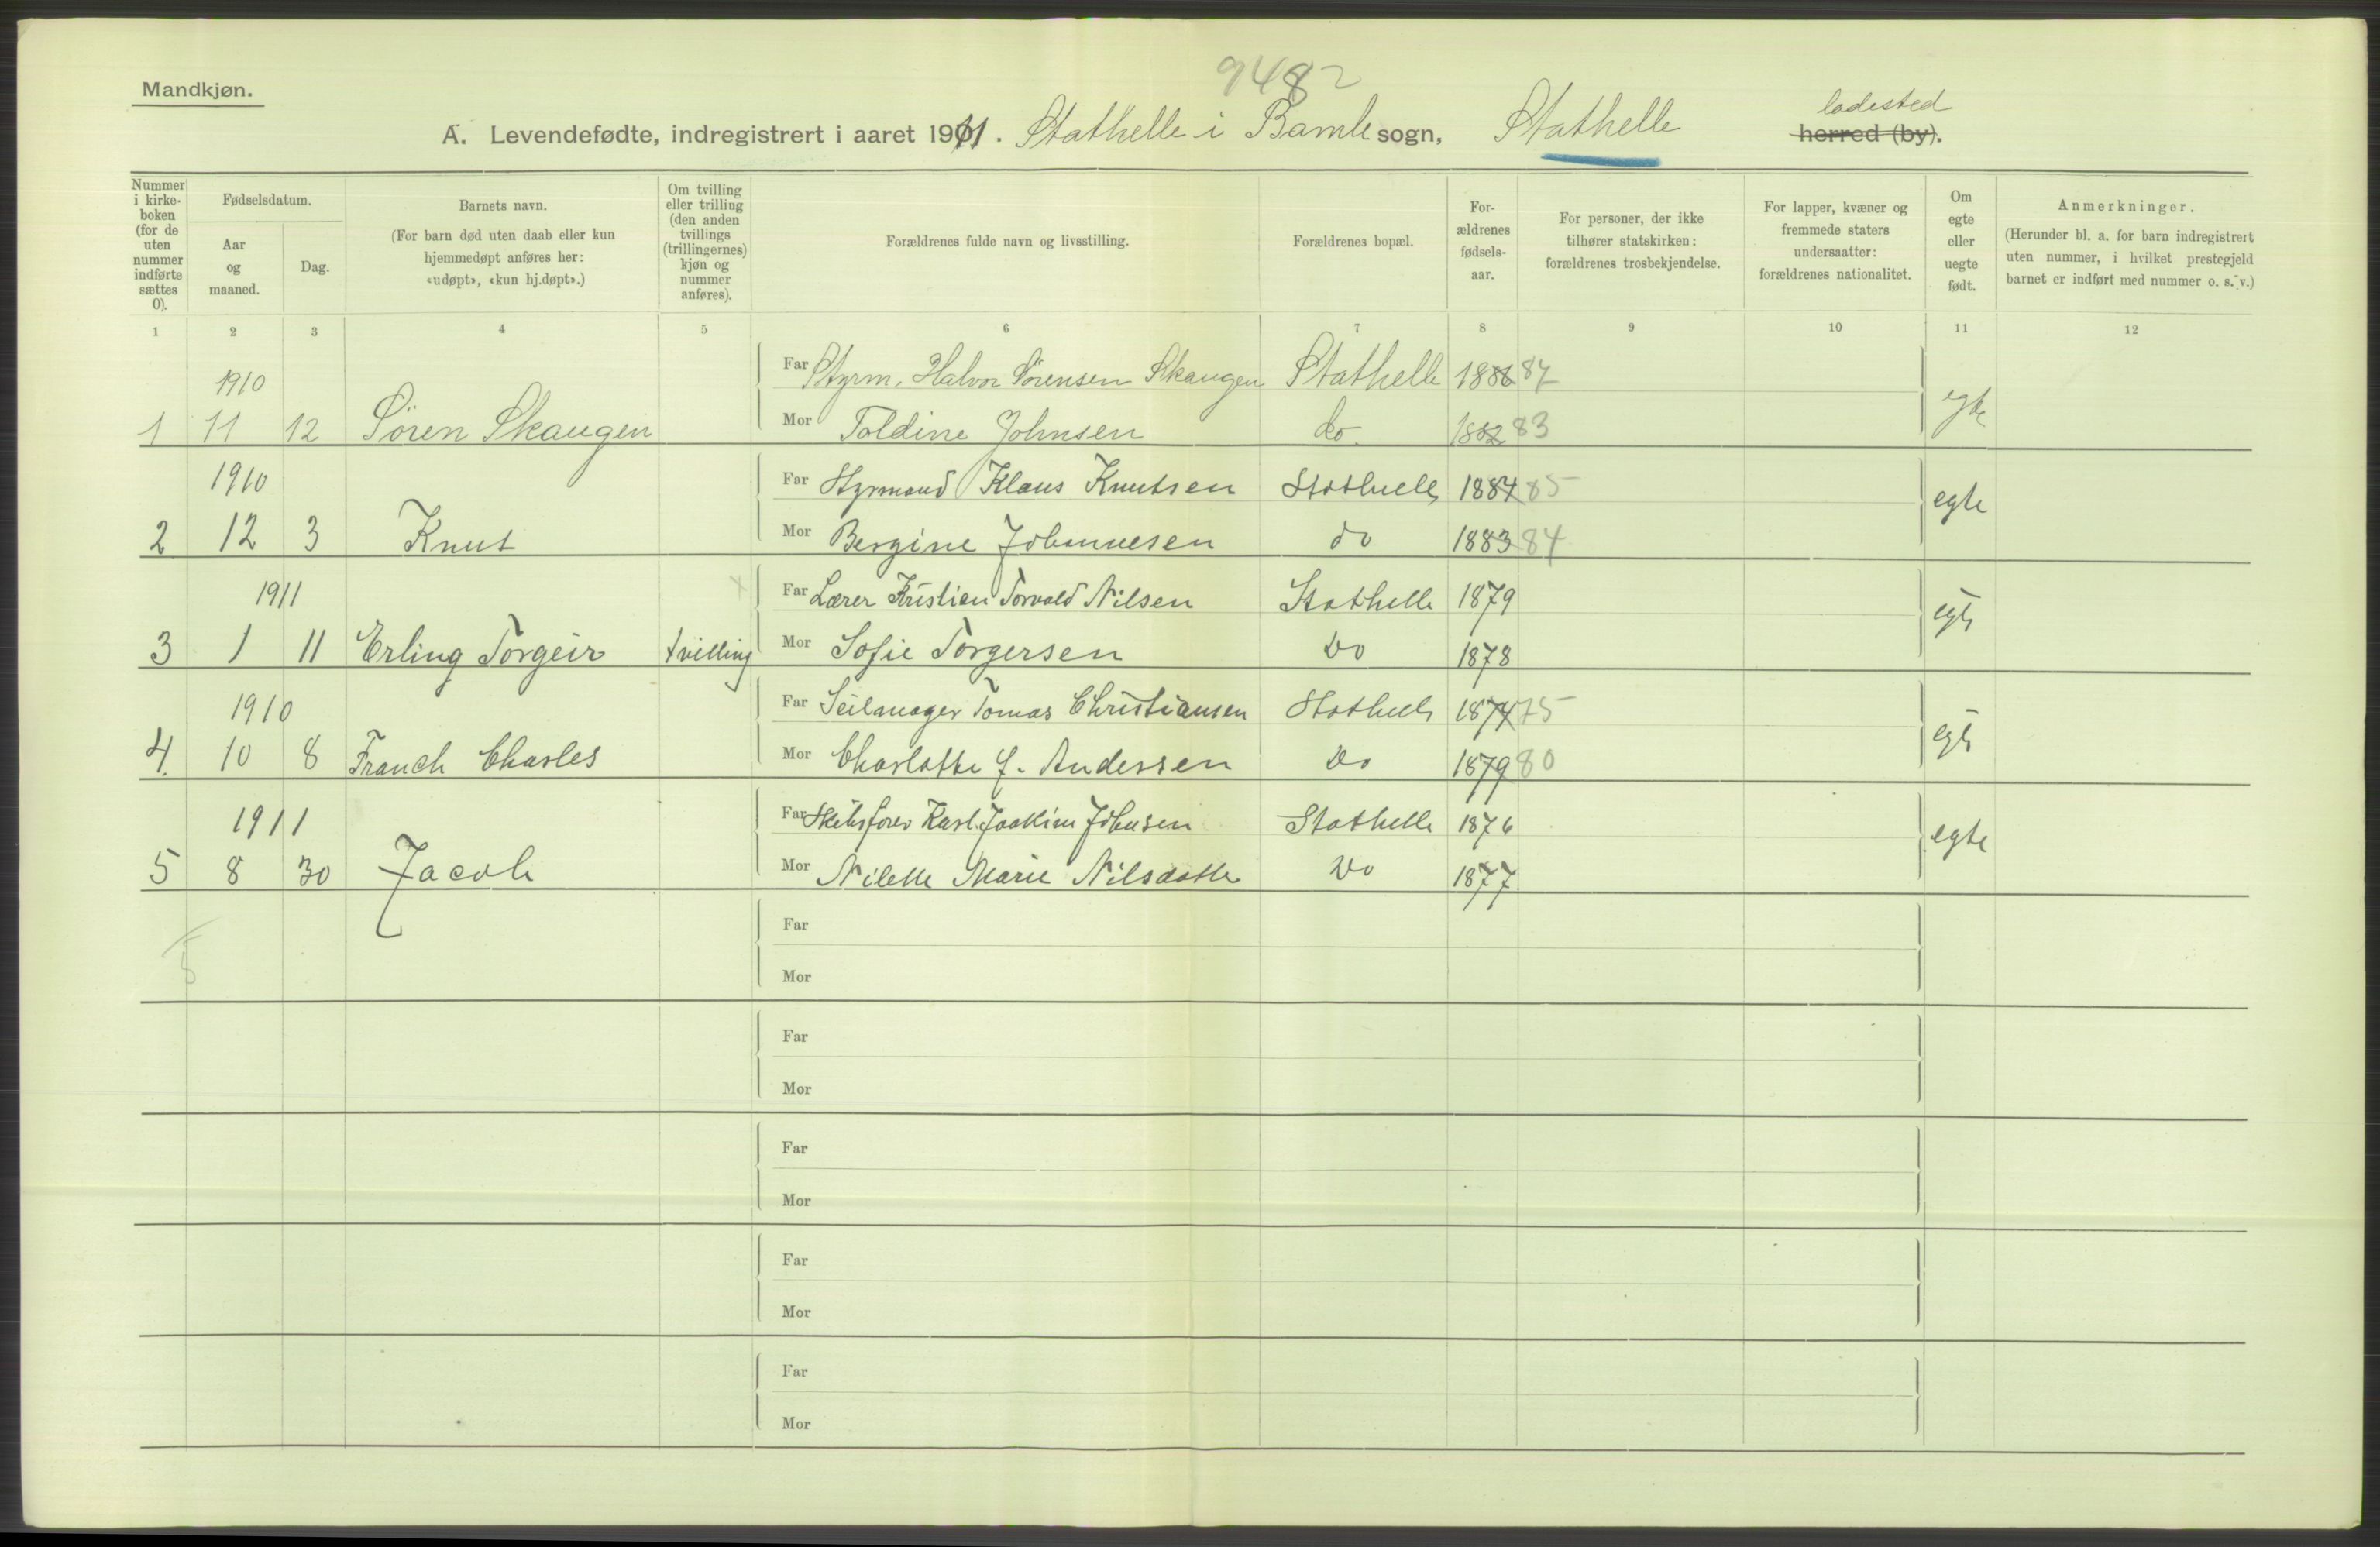 9482
Mandkjøn.
ladested
A. Levendefødte, indregistrert i aaret 1911. Stathelle i Bamle sogn, Stathelle herred (by).
Nummer i kirkeboken (for de uten nummer indførte sættes 0).
Fødselsdatum.
Aar og maaned.
Dag.
Barnets navn.
(For barn død uten daab eller kun hjemmedøpt anføres her: «udøpt», «kun hj.døpt».)
Om tvilling eller trilling (den anden tvillings (trillingernes) kjøn og nummer anføres).
Forældrenes fulde navn og livsstilling.
Forældrenes bopæl.
Forældrenes fødselsaar.
For personer, der ikke tilhører statskirken: forældrenes trosbekjendelse.
For lapper, kvæner og fremmede staters undersaatter: forældrenes nationalitet.
Om egte eller uegte født.
Anmerkninger.
(Herunder bl. a. for barn indregistrert uten nummer, i hvilket prestegjeld barnet er indført med nummer o. s. v.)
1 2 3 4 5 6 7 8 9 10 11 12
1910 Far Styrm. Halvor Sørensen Skaugen Stathelle 1886 87
1 11 12 Søren Skaugen Mor Toldine Johnsen do. 1882 83 egte
1910 Far Styrmand Klaus Knutsen Stathelle 1884 85
2 12 3 Knut Mor Bergine Johannesen do 1883 84 egte
1911 Far Lærer Kristian Torvald Nilsen Stathelle 1879
3 1 11 Erling Torgeir tvilling Mor Sofie Torgersen Do 1878 egte
1910 Far Seilmager Tomas Christiansen Stathelle 1874 75
4. 10 8 Franch Charles Mor Charlotte f. Andersen Do 1879 80 egte
1911 Far Skibsfører Karl Joakim Johnsen Stathelle 1876
5 8 30 Jacob Mor Nilette Marie Nilsdatter Do 1877 egte
Far
5
Mor
Far
Mor
Far
Mor
Far
Mor
Far
Mor